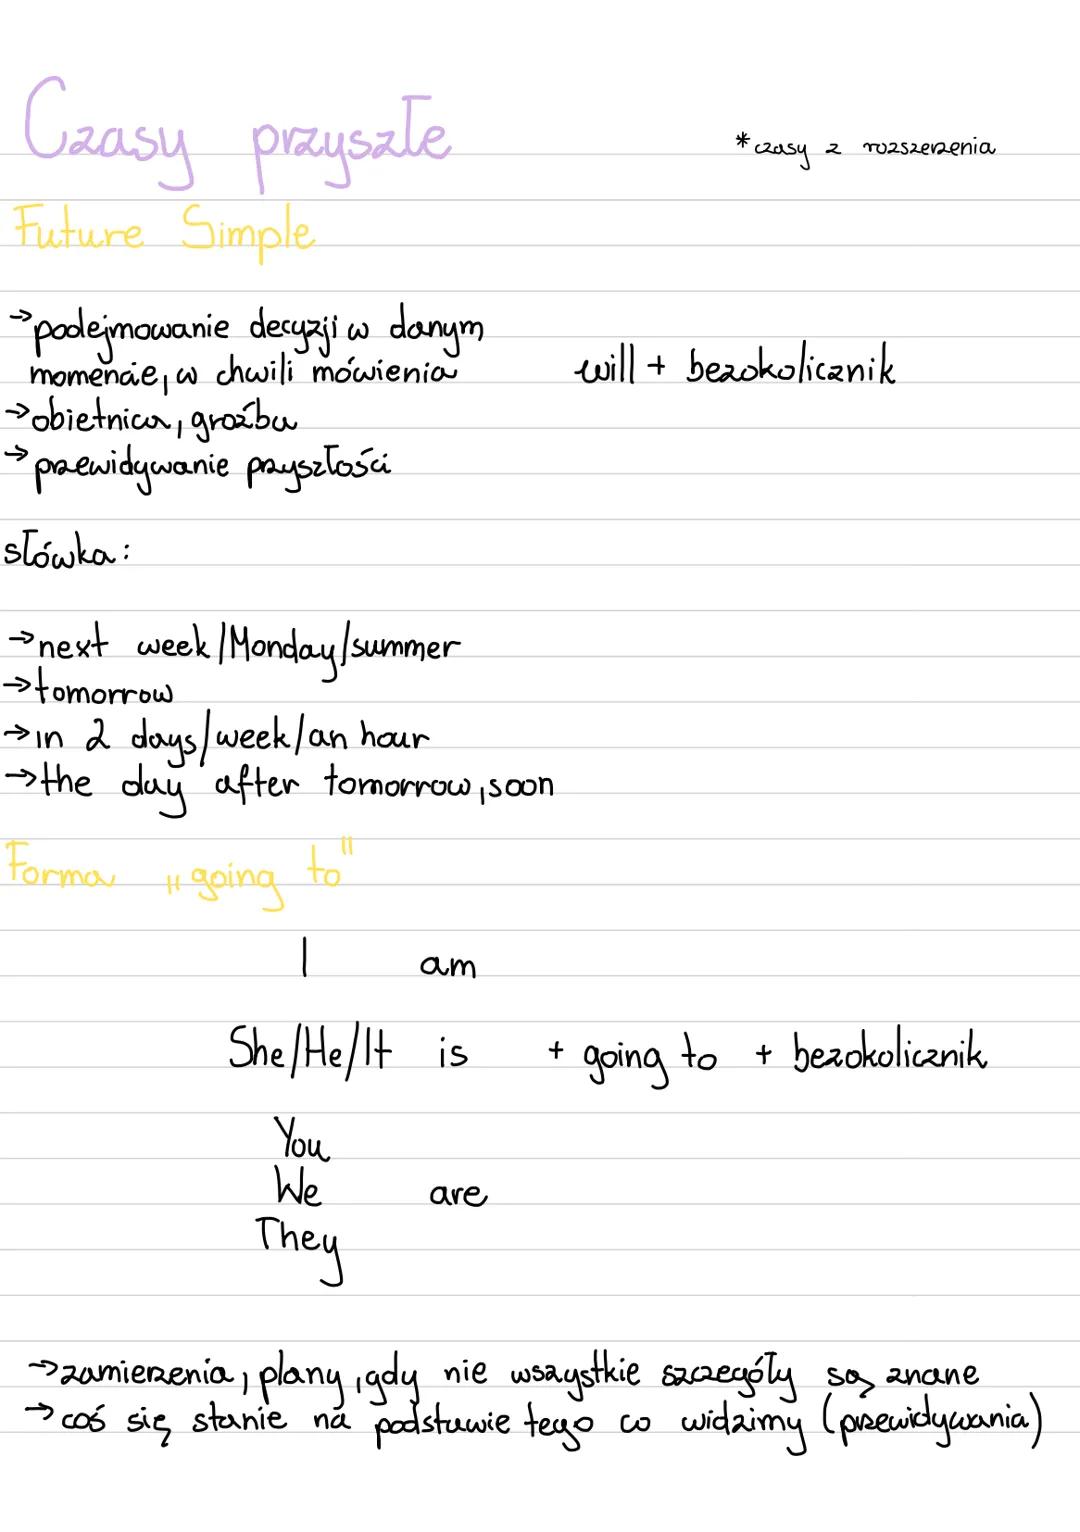 Czasy przyszłe
*czasy z rozszerzenia
Future Simple
→podejmowanie decyzji w danym
momencie, w chwili mówienia
will + bezokolicznik
→obietnica, groźba
→przewidywanie przyszłości
słówka:
→next week/Monday/summer
→tomorrow
→in 2 days/week/an hour
→the day after tomorrow, soon
Forma „going to"
I am
She/He/It is + going to + bezokolicznik
You
We are
They
→zamierzenia, plany, gdy nie wszystkie szczegóły są znane
→coś się stanie na podstawie tego co widzimy (przewidywania)